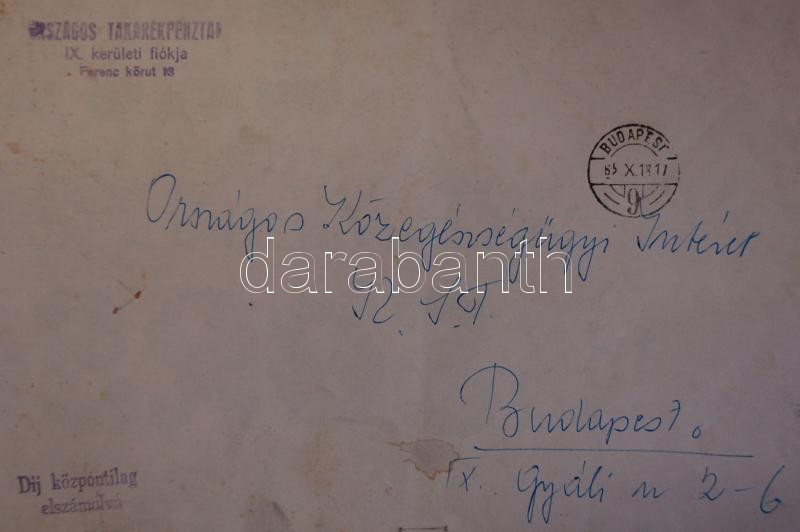 ORSZÁGOS TAKARÉKPÉNZTÁR
IX. kerületi fiókja
Ferenc körut 18
BUDAPEST
65 X.18 17
9
Országos Közegészségügyi Intézet
darabanth
Budapest.
IX. Gyáli u 2-6
Dij központilag
elszámolva